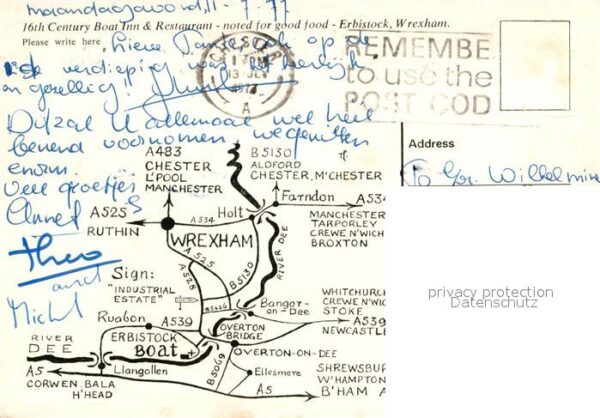 maandagavond, 11-7-77
16th Century Boat Inn & Restaurant - noted for good food - Erbistock, Wrexham.
Please write here
Lieve Tante, ook op de
verdieping was het heerlijk
en gezellig!!
CHESTER
13 JLY
1977
A
REMEMBE
to use the
POST COD
Dit zal U allemaal wel heel
benend voorkomen, we genieten
enorm.
Vele groetjes
Annet
Theo
and
Michel
Address
To Gr. Wilhelmin
A483
CHESTER
L'POOL
MANCHESTER
B5130
ALDFORD
CHESTER, M'CHESTER
Farndon
A534
MANCHESTER
TARPORLEY
CREWE N'WICH
BROXTON
A525
RUTHIN
A534
Holt
WREXHAM
A525
B5130
RIVER DEE
A528
Sign:
"INDUSTRIAL
ESTATE"
B5426
Bangor-
on-Dee
WHITCHURCH
CREWE N'WICH
STOKE
A539
NEWCASTLE
Ruabon
A539
OVERTON
BRIDGE
ERBISTOCK
BOAT
RIVER
DEE
OVERTON-ON-DEE
Llangollen
B5069
Ellesmere
A5
CORWEN, BALA
H'HEAD
A5
SHREWSBURY
W'HAMPTON
B'HAM
privacy protection
Datenschutz